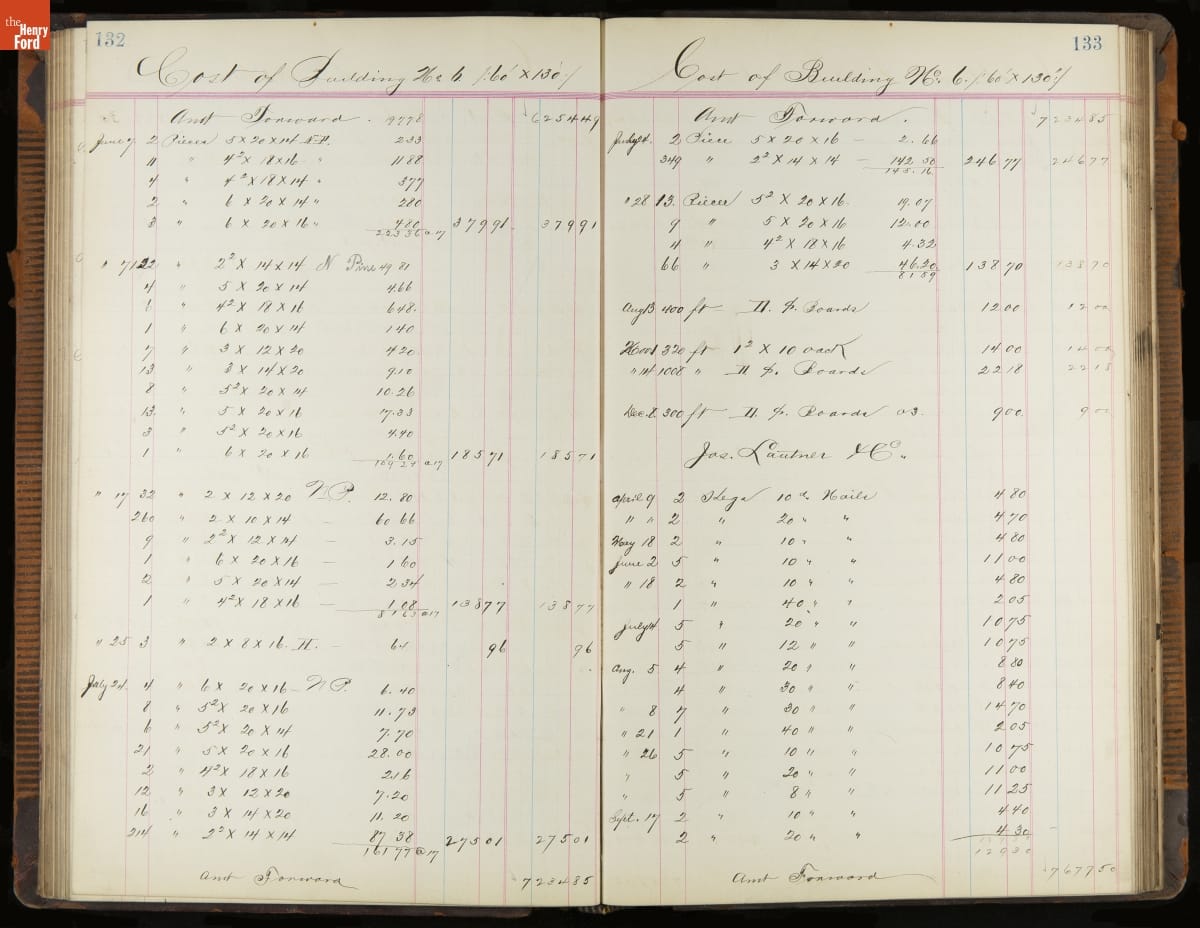 the Henry Ford
132
Cost of Building No 6 /:60' x 130':/
Amt Forward . 197 78 6254 49
June 7 2 Pieces 5 x 20 x 14 N.P. 2 33
11 " 4² x 18 x 16 " 11 88
4 " 4² x 18 x 14 " 3 77
2 " 6 x 20 x 14 " 2 80
3 " 6 x 20 x 16 " 4 80 379 91 379 91
223 36 @ 17
" 7 122 " 2² x 14 x 14 N Pine 49 81
4 " 5 x 20 x 14 4.66
6 " 4² x 18 x 16 6 48.
1 " 6 x 20 x 14 1 40
7 " 3 x 12 x 20 4 20
13 " 3 x 14 x 20 9.10
8 " 5² x 20 x 14 10.26
13. " 5 x 20 x 16 17.33
3 " 5² x 20 x 16 4.40
1 " 6 x 20 x 16 1.60 185 71 185 71
109 24 @ 17
" 17 32 " 2 x 12 x 20 N.P. 12.80
260 " 2 x 10 x 14 60 66
9 " 2² x 12 x 14 — 3.15
1 " 6 x 20 x 16 — 1 60
2 " 5 x 20 x 14 — 2.34
1 " 4² x 18 x 16 — 1.08 138 77 138 77
81 63 @ 17
" 25 3 " 2 x 8 x 16. H. — 64 96 96
July 24. 4 " 6 x 20 x 16 — N.P. 6.40
8 " 5² x 20 x 16 11.73
6 " 5² x 20 x 14 7.70
21 " 5 x 20 x 16 28.00
2 " 4² x 18 x 16 2.16
12 " 3 x 12 x 20 7.20
16 " 3 x 14 x 20 11.20
214 " 2² x 14 x 14 87 38 275 01 275 01
161 77 @ 17
Amt Forward 7234 85
133
Cost of Building No. 6. /:60' x 130':/
Amt Forward. 7234 85
July 24. 2 Piece 5 x 20 x 16 — 2.66
349 " 2² x 14 x 14 — 142.50 246 77 246 77
145.16
" 28 13. Pieces 5² x 20 x 16. 19.07
9 " 5 x 20 x 16 12.00
4 " 4² x 18 x 16 4.32
66 " 3 x 14 x 20 46.20 138 70 138 70
81.59
Aug 13 400 ft H. P. Boards 12 00 12 00
Nov 1 320 ft 1² x 10 oack 14 00 14 00
" 14 1008 " H P. Boards 22 18 22 18
Dec. 8. 300 ft H. P. Boards 03. 9 00. 9 00
Jos. Lautner & Co.
April 9 2 Kegs 10 d. Nails 4 80
" " 2 " 20 " " 4 70
May 18 2 " 10 " " 4 80
June 2 5 " 10 " " 11 00
" 18 2 " 10 " " 4 80
1 " 40 " " 2 05
July 4 5 " 20 " " 10 75
5 " 12 " " 10 75
Aug. 5 4 " 20 " " 8 80
4 " 30 " " 8 40
" 8 7 " 30 " " 14 70
" 21 1 " 40 " " 2 05
" 26 5 " 10 " " 10 75
" 5 " 20 " " 11 00
" 5 " 8 " " 11 25
Sept. 17 2 " 10 " " 4 40
2 " 20 " " 4 30
129 30
Amt Forward 7677 50